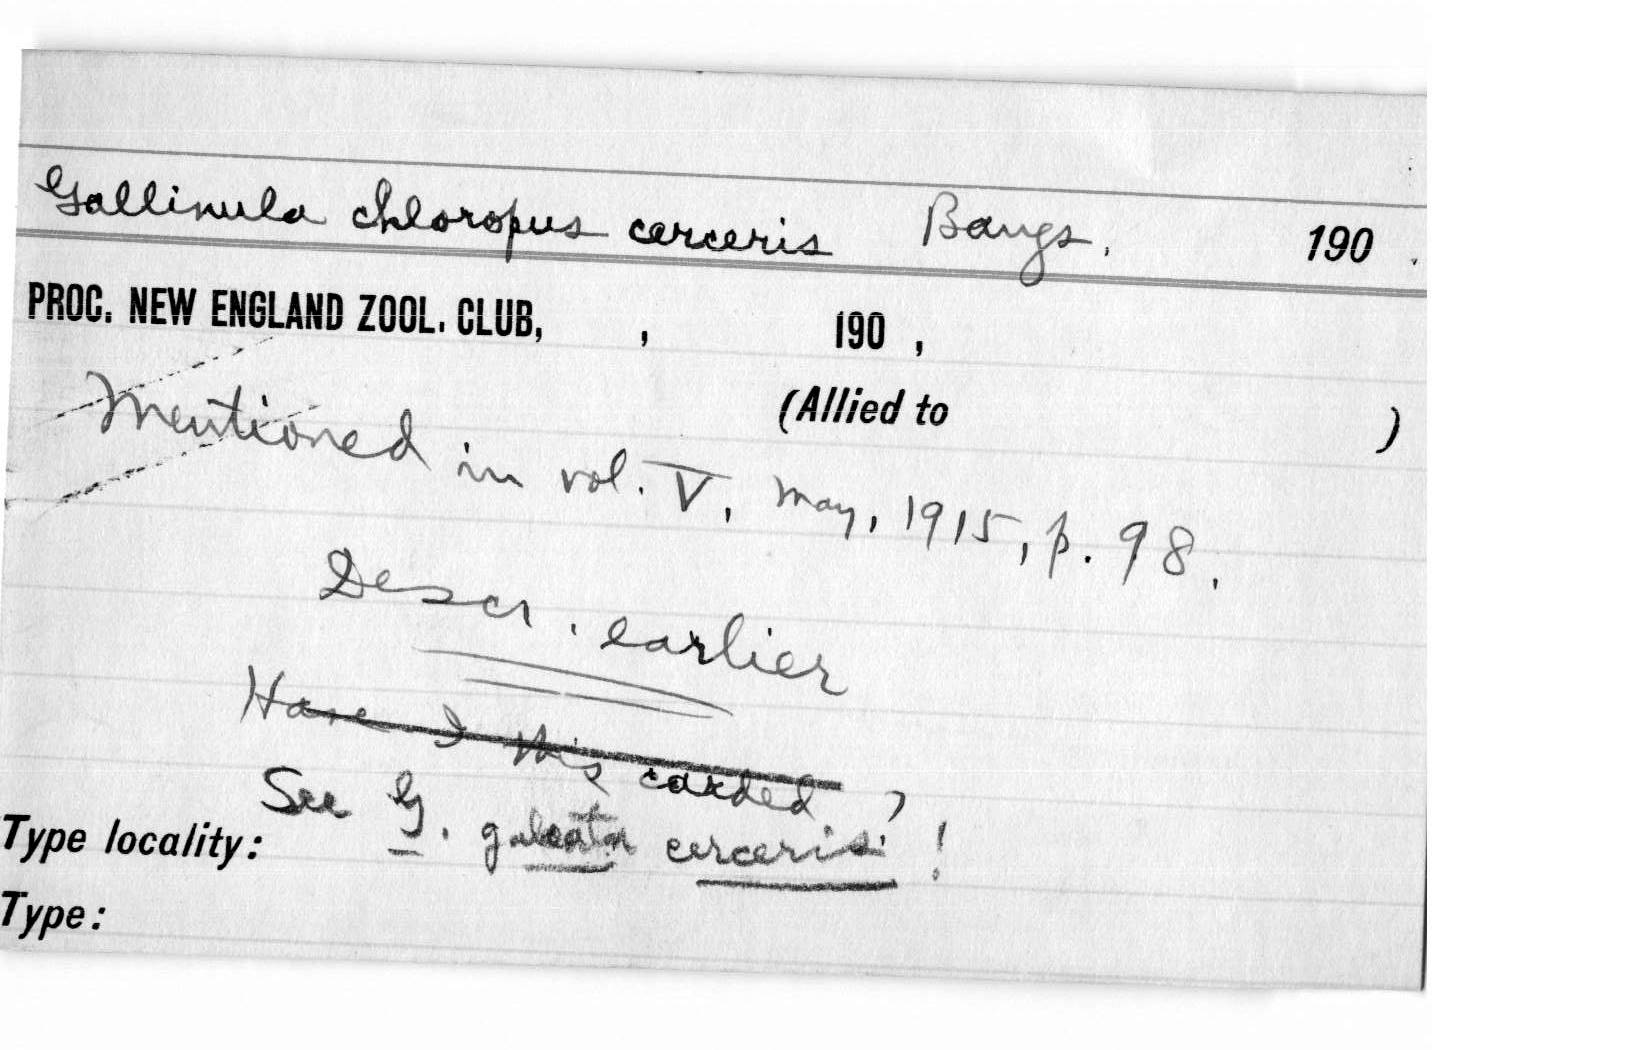 Gallinula chloropus cerceris Bangs. 190 .
PROC. NEW ENGLAND ZOOL. CLUB, , 190 ,
(Allied to )
Mentioned in vol. V, May, 1915, p. 98.
Descr. earlier
Have I this carded ?
See G. galeata cerceris !
Type locality:
Type: